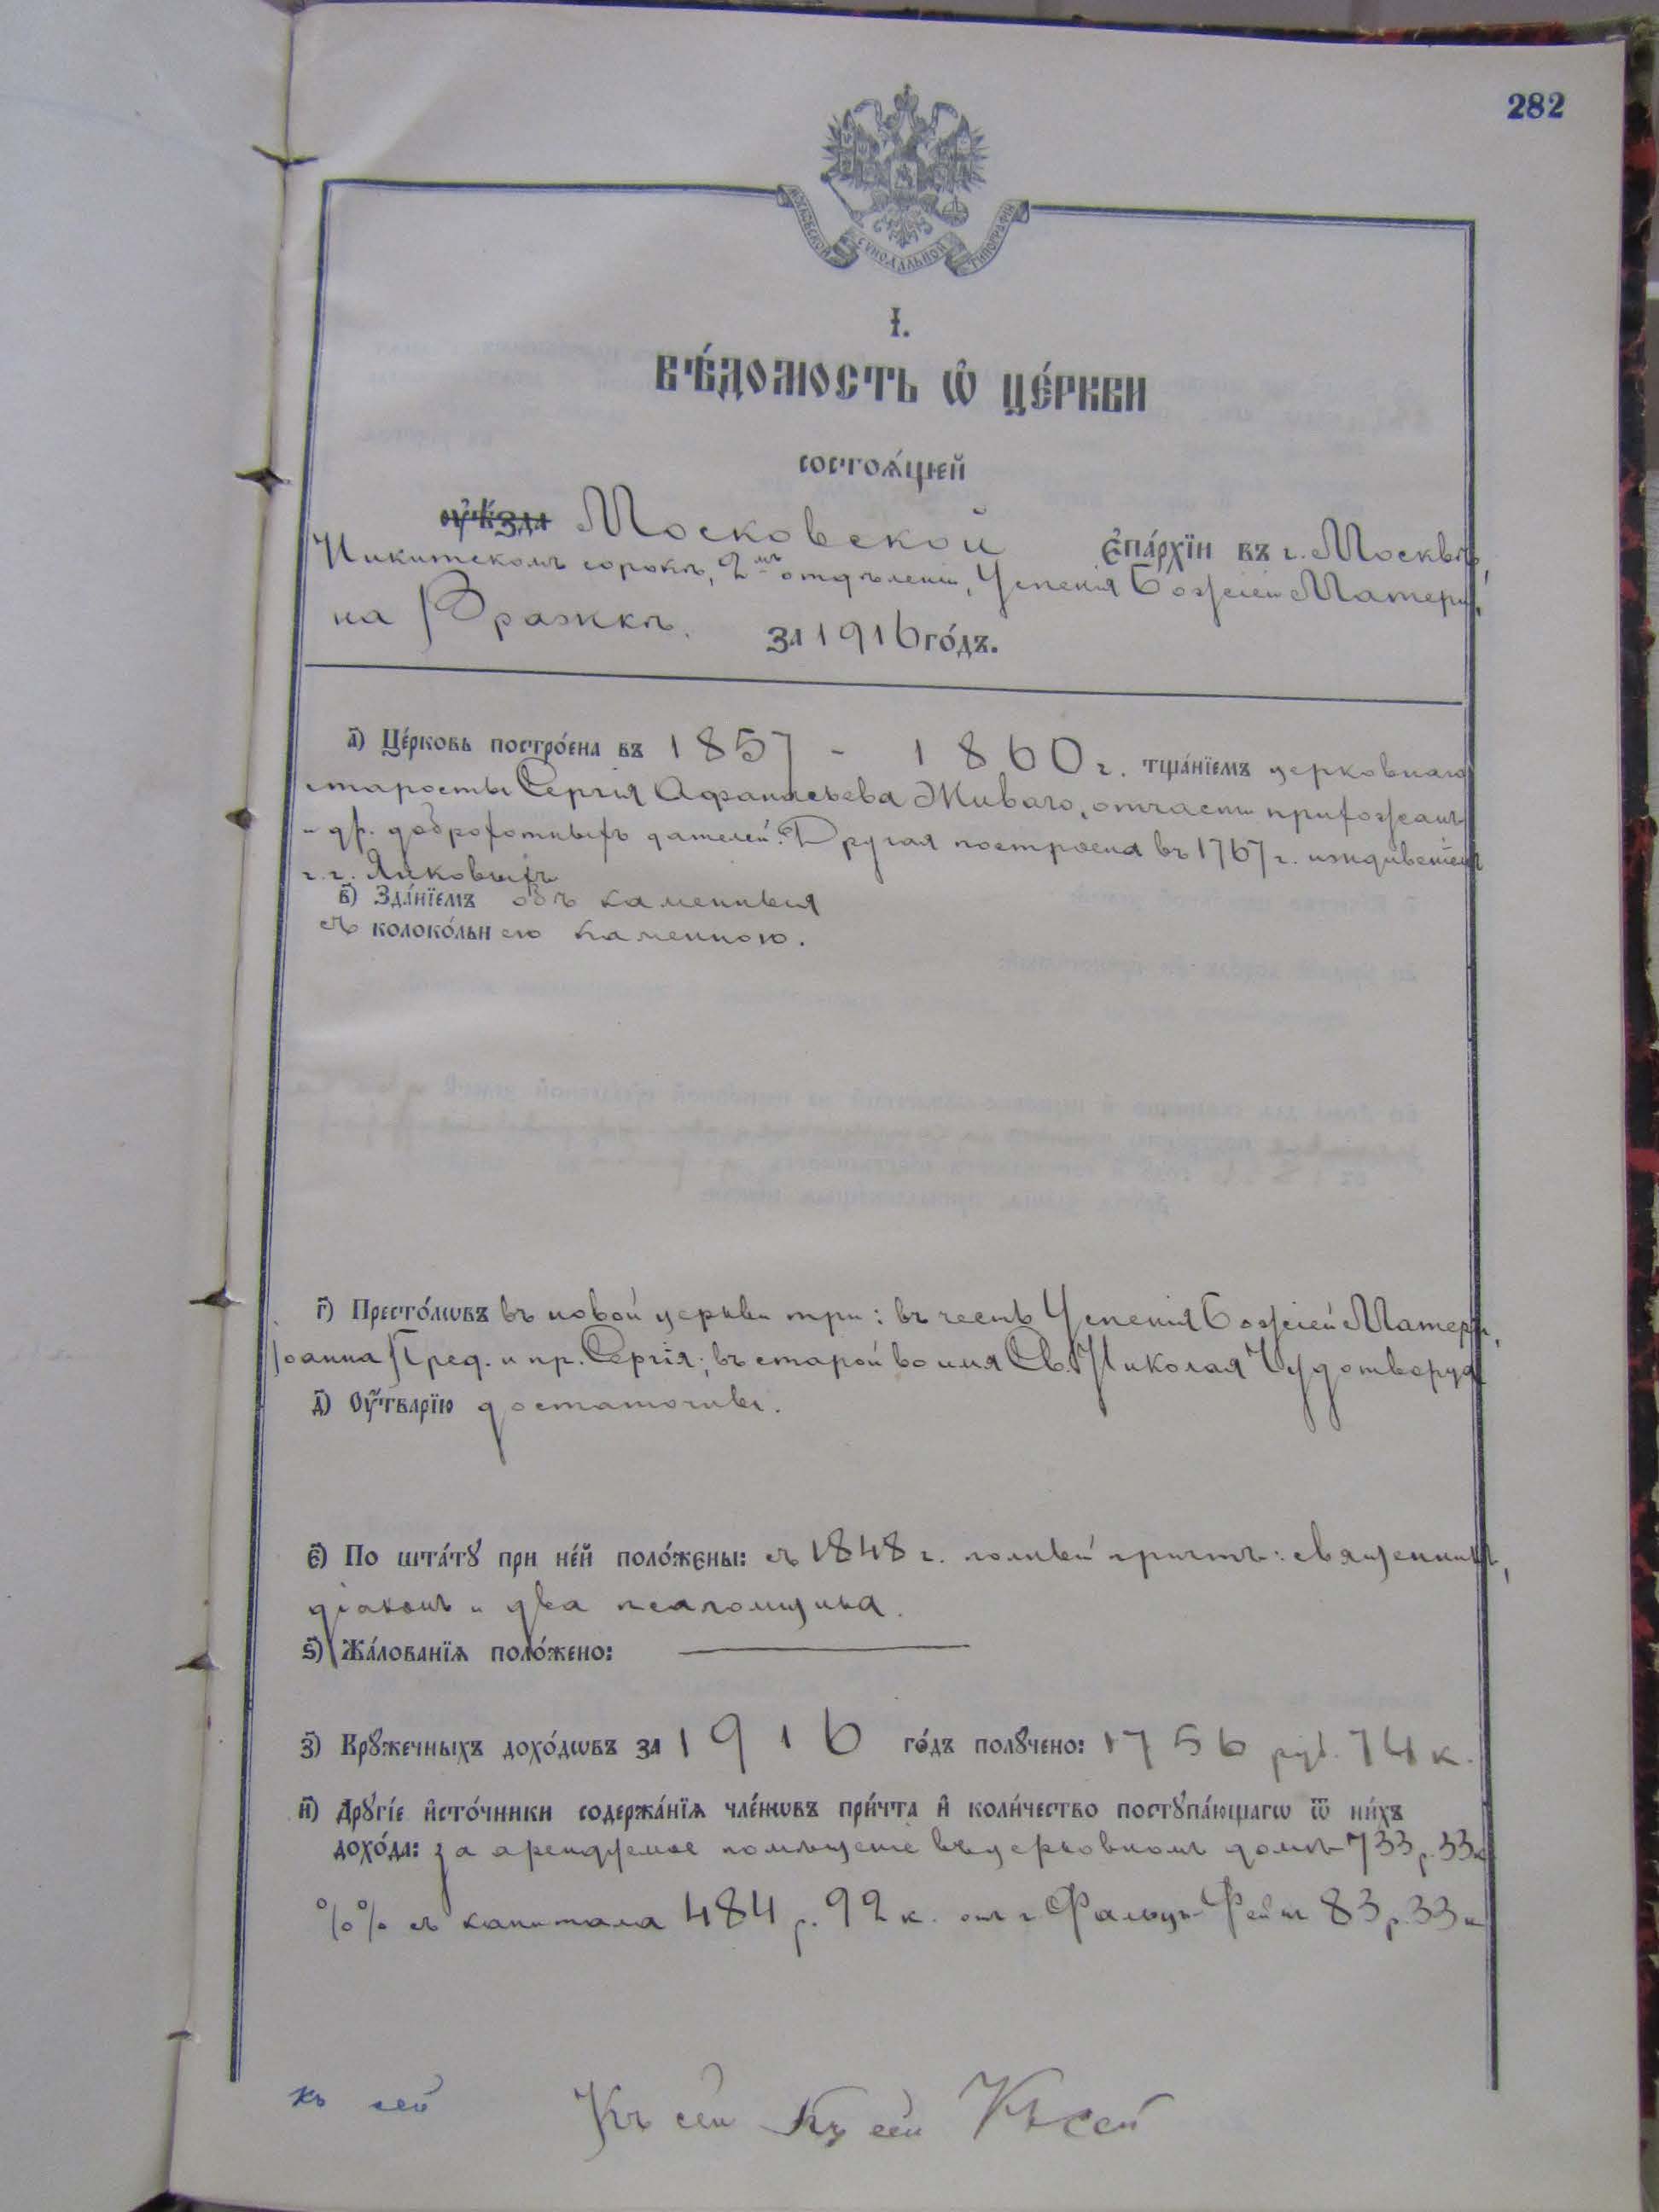 282
МОСКОВСКОЙ СѴНОДАЛЬНОЙ ТИПОГРАФІИ
І.
ВѢ́ДОМОСТЬ Ѡ҆ ЦЕ́РКВИ
состоѧ́щей
ᲂу҆ѣ́зда Московской є҆па́рхїи въ г. Москвѣ,
Никитскомъ сорокѣ, 2мъ отдѣленіи, Успенія Божіей Матери,
на Вражкѣ. за 1916 го́дъ.
а҃) Це́рковь постро́ена въ 1857 - 1860 г. тща́нїемъ церковнаго
старосты Сергія Афанасьева Живаго, отчасти прихожанъ
и др. доброхотныхъ дателей. Другая построена въ 1767 г. иждивеніемъ
г.г. Яньковыхъ
в҃) Зда́нїемъ обѣ каменныя
съ колоко́льнею каменною.
г҃) Престо́лѡвъ въ новой церкви три: въ честь Успенія Божіей Матери,
Іоанна Пред. и пр. Сергія; въ старой во имя Св. Николая Чудотворца
д҃) Оу҆́тварїю достаточны.
є҃) По шта́тꙋ при не́й поло́жены: съ 1848 г. полный причтъ: священникъ,
діаконъ и два псаломщика.
ѕ҃) Жа́лованїѧ поло́жено: —
з҃) Крꙋ́жечныхъ дохо́дѡвъ за 1916 го́дъ полꙋ́чено: 1756 руб. 74 к.
и҃) Дрꙋгі́е и҆сто́чники содержа́нїѧ чле́нѡвъ при́чта и҆ коли́чество постꙋпа́ющагѡ ѿ ни́хъ
дохо́да: за арендуемое помѣщеніе въ церковномъ домѣ 733 р. 33 к
%% съ капитала 484 р. 92 к. отъ г. Фальцъ-Фейнъ 83 р. 33 к
къ сей Къ сей Къ сей Къ сей